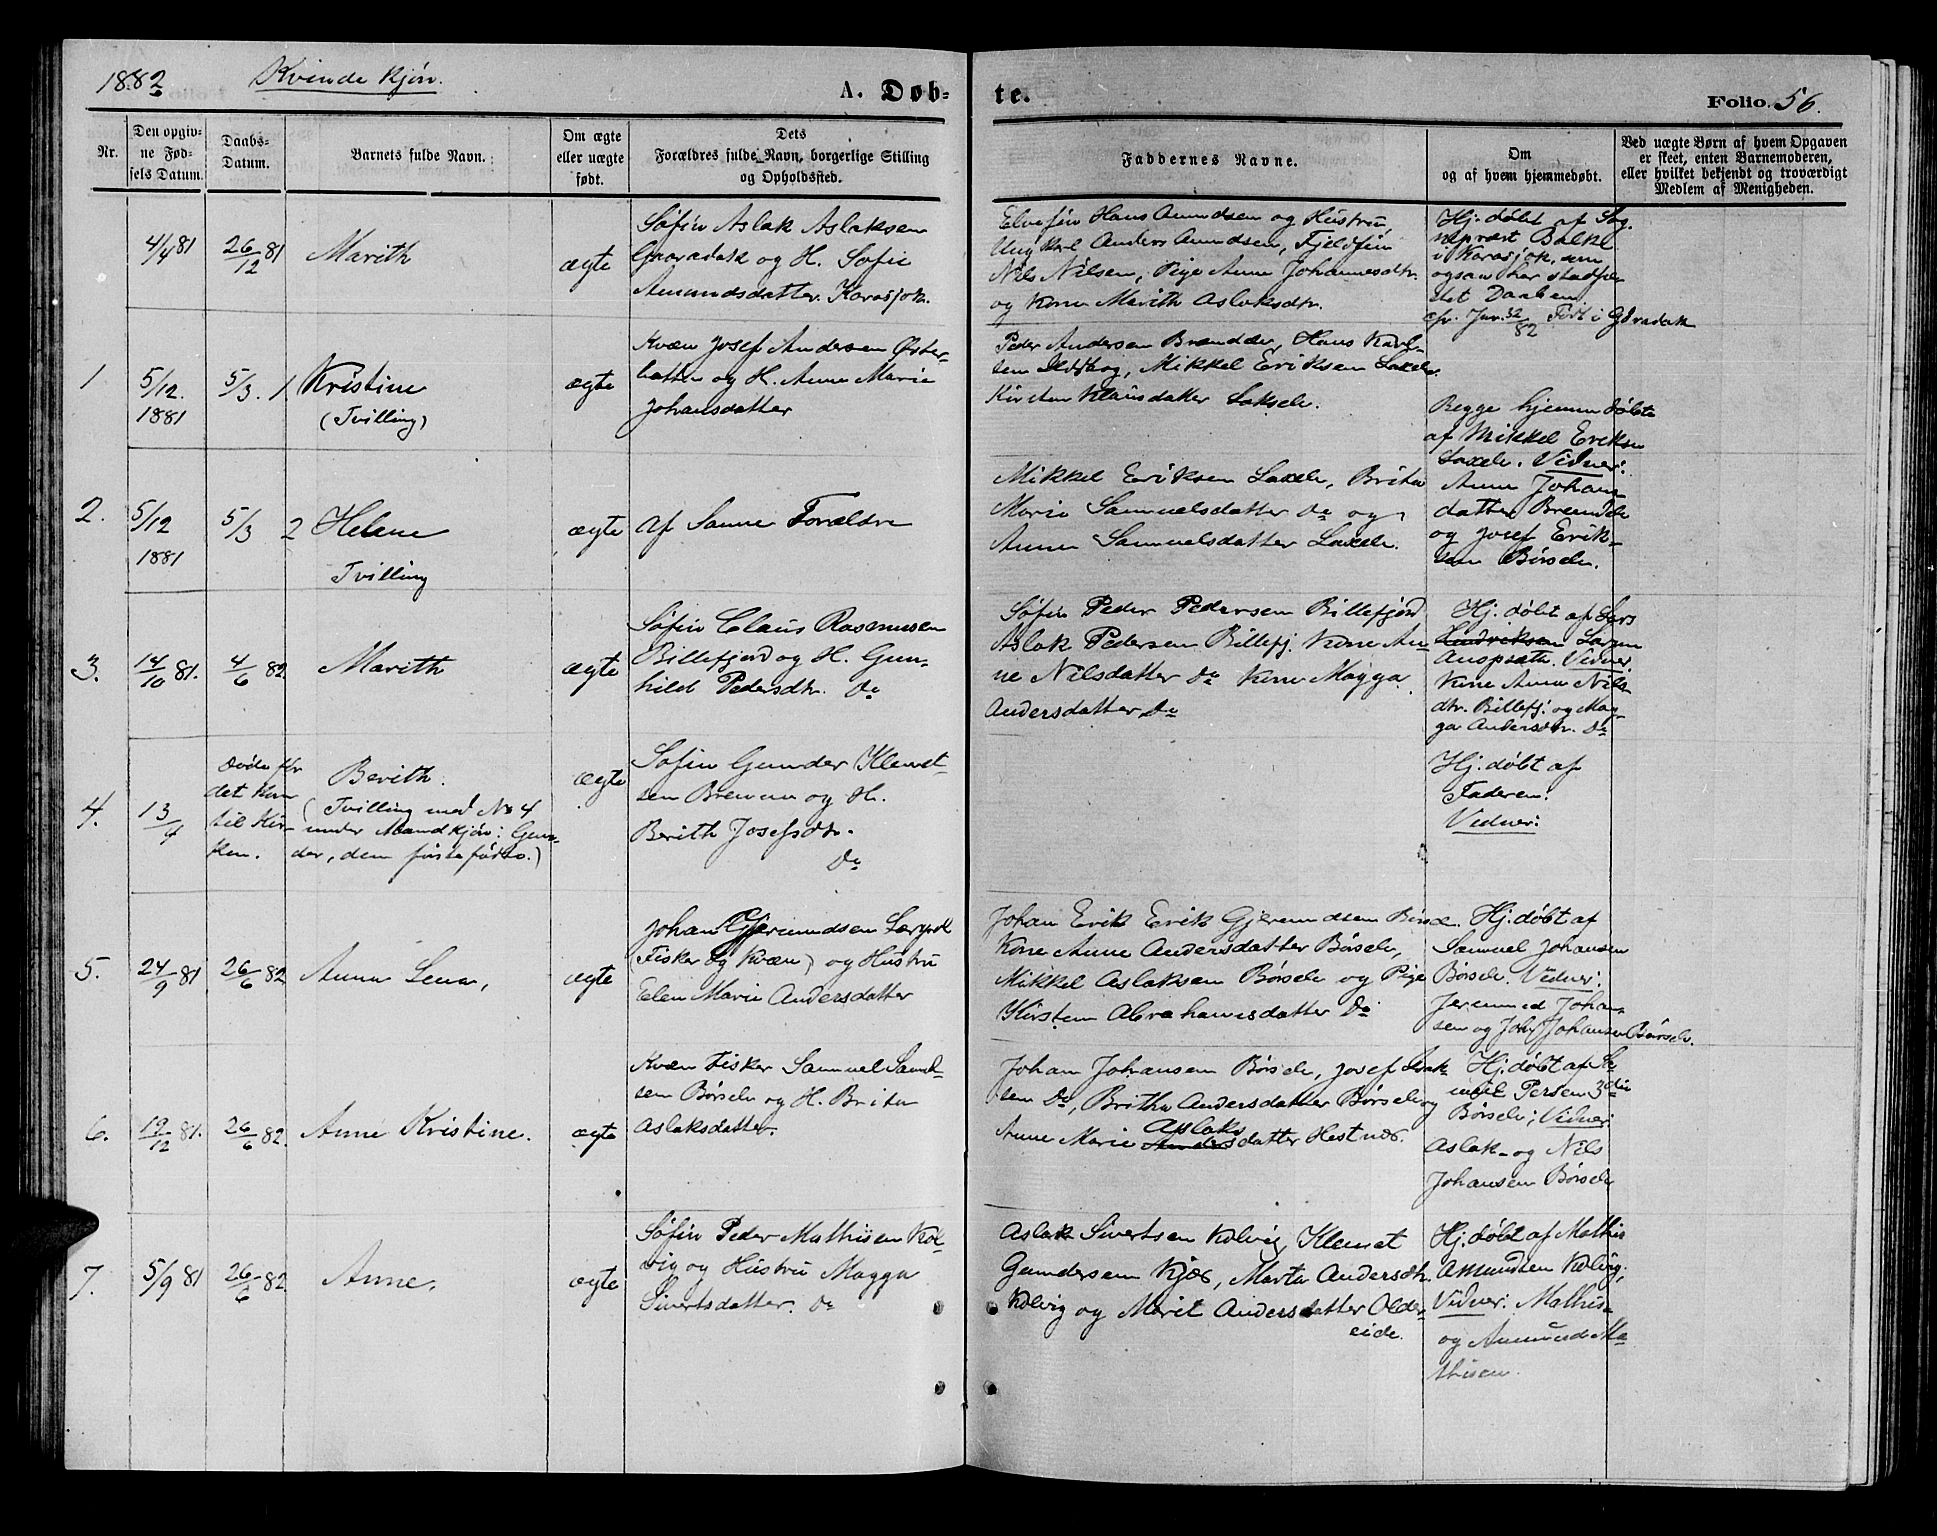 1882
Kvinde kjøn.
A. Døb-
te.
Folio. 56.
Nr.
Den opgiv-
ne Fød-
sels Datum.
Daabs-
Datum.
Barnets fulde Navn.
Om ægte
eller uægte
født.
Dets
Forældres fulde Navn, borgerlige Stilling
og Opholdssted.
Faddernes Navne.
Om
og af hvem hjemmedøbt.
Ved uægte Børn af hvem Opgaven
er skeet, enten Barnemoderen,
eller hvilket bekjendt og troværdigt
Medlem af Menigheden.
4/4 81
26/12 81
Marith
ægte
Søfin Aslak Aslaksen
og H. Sofie
Amundsdatter. Karasjok.
Elvefin Hans Amundsen og Hustru
Ungkarl Anders Amundsen, Fjeldfin
Nils Nilsen, Pige Anne Johannesdtr.
og Kone Marith Aslaksdtr.
Hj. døbt af Sog-
nepræst Balke
i Karasjok, som
ogsaa har stadfæ-
stet Daaben
cfr. Jur. 32/82 Født i
1
5/12.
1881
5/3. 1
Kristine
(Tvilling)
ægte
Kvæn Josef Andersen Øster-
botten og H. Anne Marie
Johansdatter
Peder Andersen Brændde, Hans Karl-
sen , Mikkel Eriksen Laxelv.
Kirsten Klausdatter Lakselv.
Begge hjemmedøbte
af Mikkel Eriksen
Laxelv. Vidner:
Anne Johans-
datter
og Josef Erik-
sen Børselv.
2.
5/12
1881
5/3 2
Helene
Tvilling
ægte
Af Samme Forældre
Mikkel Eriksen Laxelv, Brita
Marie Samuelsdatter Do og
Anna Samuelsdatter Laxelv.
3.
14/10 81.
4/6 82
Marith
ægte
Søfin Claus Rasmussen
Billefjord og H. Gun-
hild Pedersdtr. Do
Søfin Peder Pedersen Billefjord
Aslak Pedersen Billefj. Kone An-
ne Nilsdatter Do Kone Magga
Andersdatter Do
Hj. døbt af Lars
Vidner.
Kone Anna Nils-
dtr. Billefj. og Mag-
ga Andersdtr. Do
4.
13/4
Døde før
det kom
til Kir-
ken.
Berith.
(Tvilling med No 4
under Mandkjøn: Gun-
der, den førstefødte.)
ægte
Søfin Gunder Klemet-
sen Brenna og H.
Berith Josefsdtr.
Do
Hj. døbt af
Faderen.
Vidner:
5.
24/9 81
26/6 82
Anna Lena,
ægte
Johan Gjerumdsen
(Fisker og Kvæn) og Hustru
Elen Marie Andersdatter
Johan Erik Erik Gjerumdsen Børselv.
Kone Anne Andersdatter Børselv,
Mikkel Aslaksen Børselv og Pige
Kirsten Abrahamsdatter Do
Hj. døbt af
Samuel Johansen
Børselv. Vidner:
Jeremud Johan-
sen og Johansen Børselv.
6.
19/12 81.
26/6 82.
Anne Kristine.
ægte
Kvæn Fisker Samuel Samuel-
sen Børselv og H. Brita
Aslaksdatter.
Johan Johansen Børselv, Josef Isak-
sen Do, Britha Andersdatter Børselv og
Aslaks
Anne Marie Andersdatter Hestnæs.
Hj. døbt af Sa-
muel Persen
Børselv; Vidner
Aslak- og Nils
Johansen Børselv
7.
5/9 81
26/6 82.
Anne,
ægte
Søfin Peder Mathisen Kol-
vig og Hustru Magga
Sivertsdatter. Do
Aslak Sivertsen Kolvig, Klemet
Gundersen Kjæs, Marta Andersdtr.
Kolvig og Marit Andersdatter Older-
eide.
Hj. døbt af Mathis
Amundsen Kolvig.
Vidner: Mathis-
og Amund Ma-
thisen.